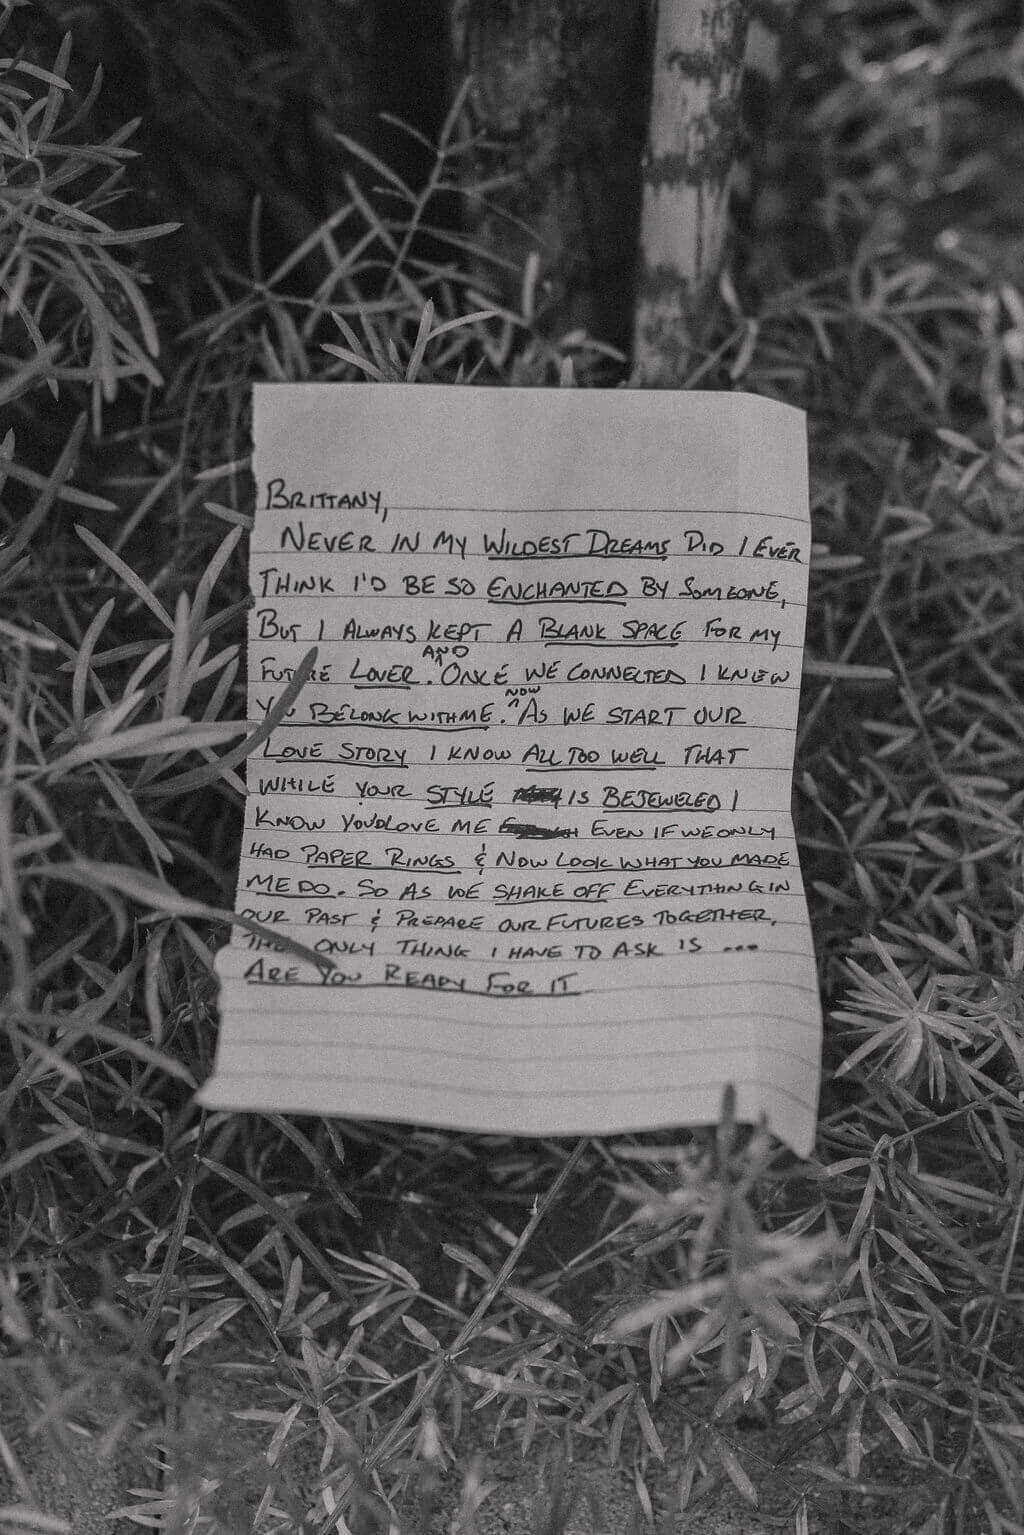 BRITTANY,
NEVER IN MY WILDEST DREAMS DID I EVER
THINK I'D BE SO ENCHANTED BY SOMEONE,
BUT I ALWAYS KEPT A BLANK SPACE FOR MY
FUTURE LOVER. AND ONCE WE CONNECTED I KNEW
YOU BELONG WITH ME. NOW AS WE START OUR
LOVE STORY I KNOW ALL TOO WELL THAT
WHILE YOUR STYLE IS BEJEWELED I
KNOW YOU'D LOVE ME EVEN IF WE ONLY
HAD PAPER RINGS & NOW LOOK WHAT YOU MADE
ME DO. SO AS WE SHAKE OFF EVERYTHING IN
OUR PAST & PREPARE OUR FUTURES TOGETHER,
THE ONLY THING I HAVE TO ASK IS ...
ARE YOU READY FOR IT